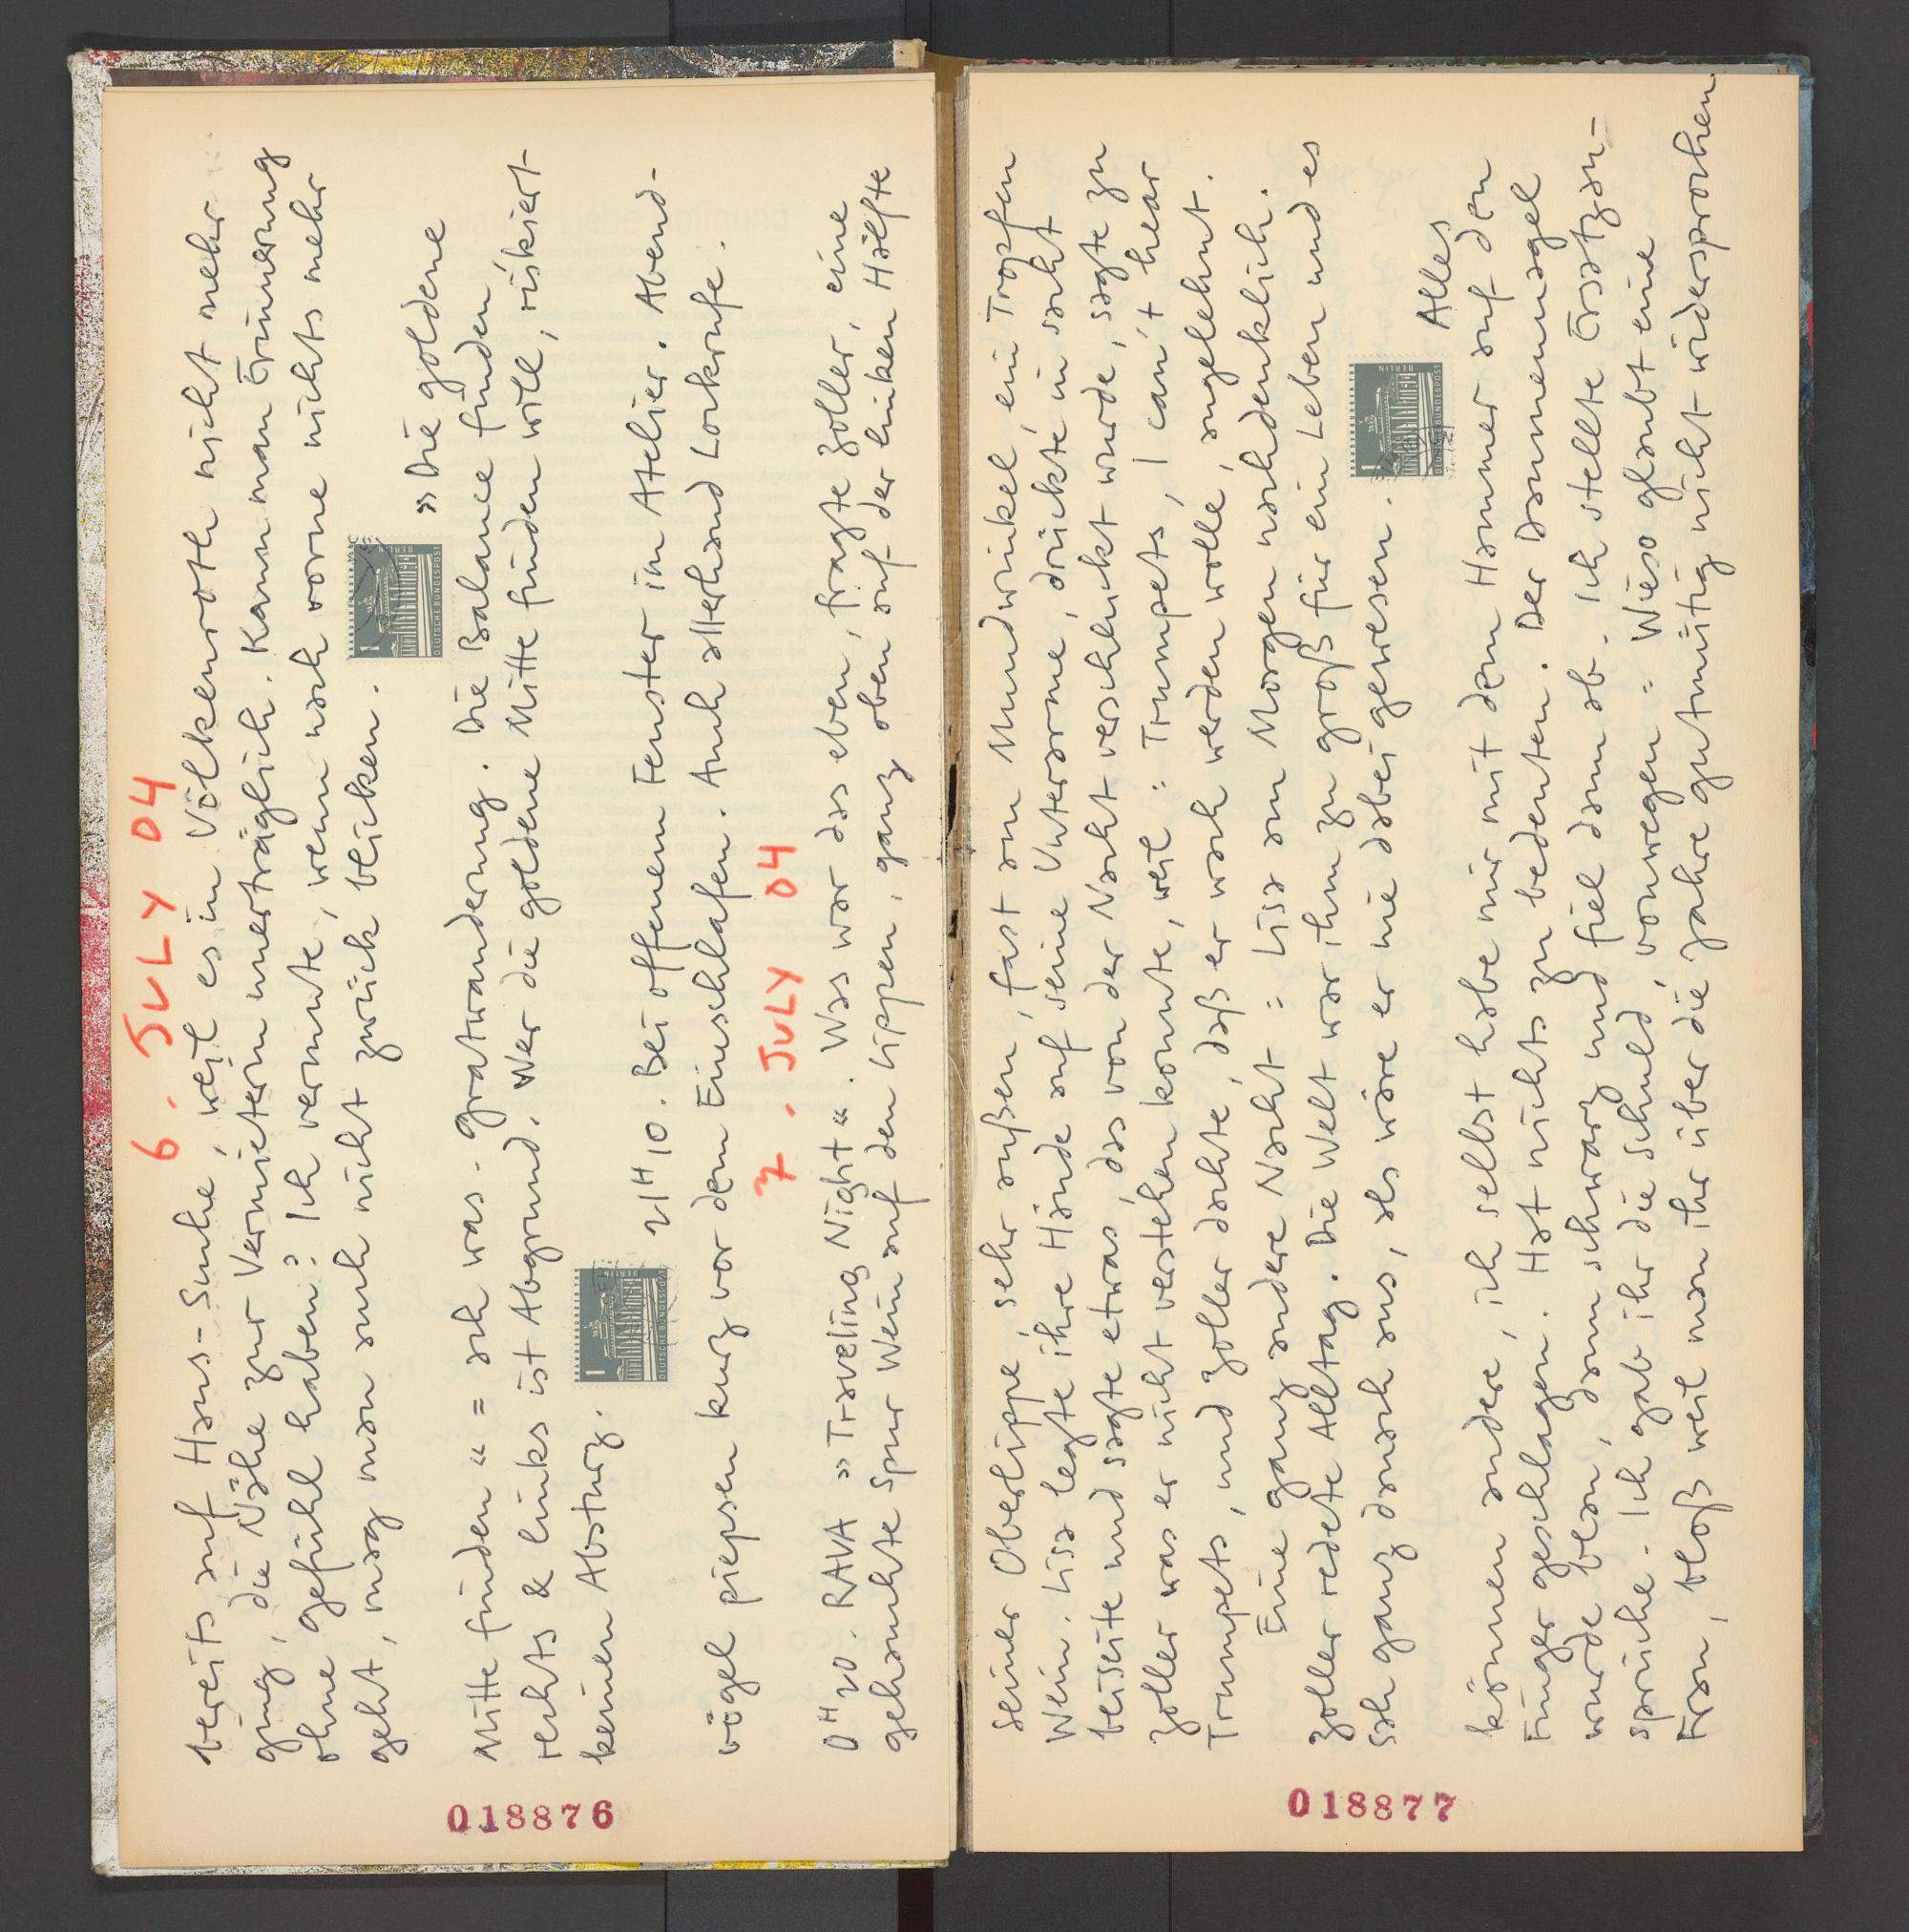 6. JULY 04
bereits auf Haus-Suche, weil es in Völkenroth nicht mehr
ging, die Nähe zur Vermieterin unerträglich. Kann man Erinnerung
ohne Gefühl haben? Ich vermute, wenn nach vorne nichts mehr
geht, mag man auch nicht zurück blicken.
»Die goldene
Mitte finden« = ach was. Gratwanderung. Die Balance finden
rechts & links ist Abgrund. Wer die goldene Mitte finden will, riskiert
keinen Absturz.
21H10. Bei offenem Fenster im Atelier. Abend-
vögel piepsen kurz vor dem Einschlafen. Auch allerhand Lockrufe.
7. JULY 04
0H20. RAVA »Traveling Night«. Was war das eben, fragte Zoller, eine
gehauchte Spur Wein auf den Lippen, ganz oben auf der linken Hälfte
018876
seiner Oberlippe, sehr außen, fast am Mundwinkel, ein Tropfen
Wein. Lisa legte ihre Hände auf seine Unterarme, drückte in sacht
beiseite und sagte etwas, das von der Nacht verschluckt wurde, sagte zu
Zoller was er nicht verstehen konnte, weil = Trumpets, I can't hear
Trumpets, und Zoller dachte, daß er wach werden wolle, angelehnt.
Eine ganz andere Nacht = Lisa am Morgen nachdenklich.
Zoller redete Alltag. Die Welt war ihm zu groß für ein Leben und es
sah ganz danach aus, als wäre er nie dabei gewesen.
Alles
können andere, ich selbst habe mir mit dem Hammer auf den
Finger geschlagen. Hat nichts zu bedeuten. Der Daumennagel
wurde blau, dann schwarz und fiel dann ab. Ich stellte Ersatzan-
sprüche. Ich gab ihr die Schuld, vonwegen = Wieso glaubt eine
Frau, bloß weil man ihr über die Jahre gutmütig nicht widersprochen
018877